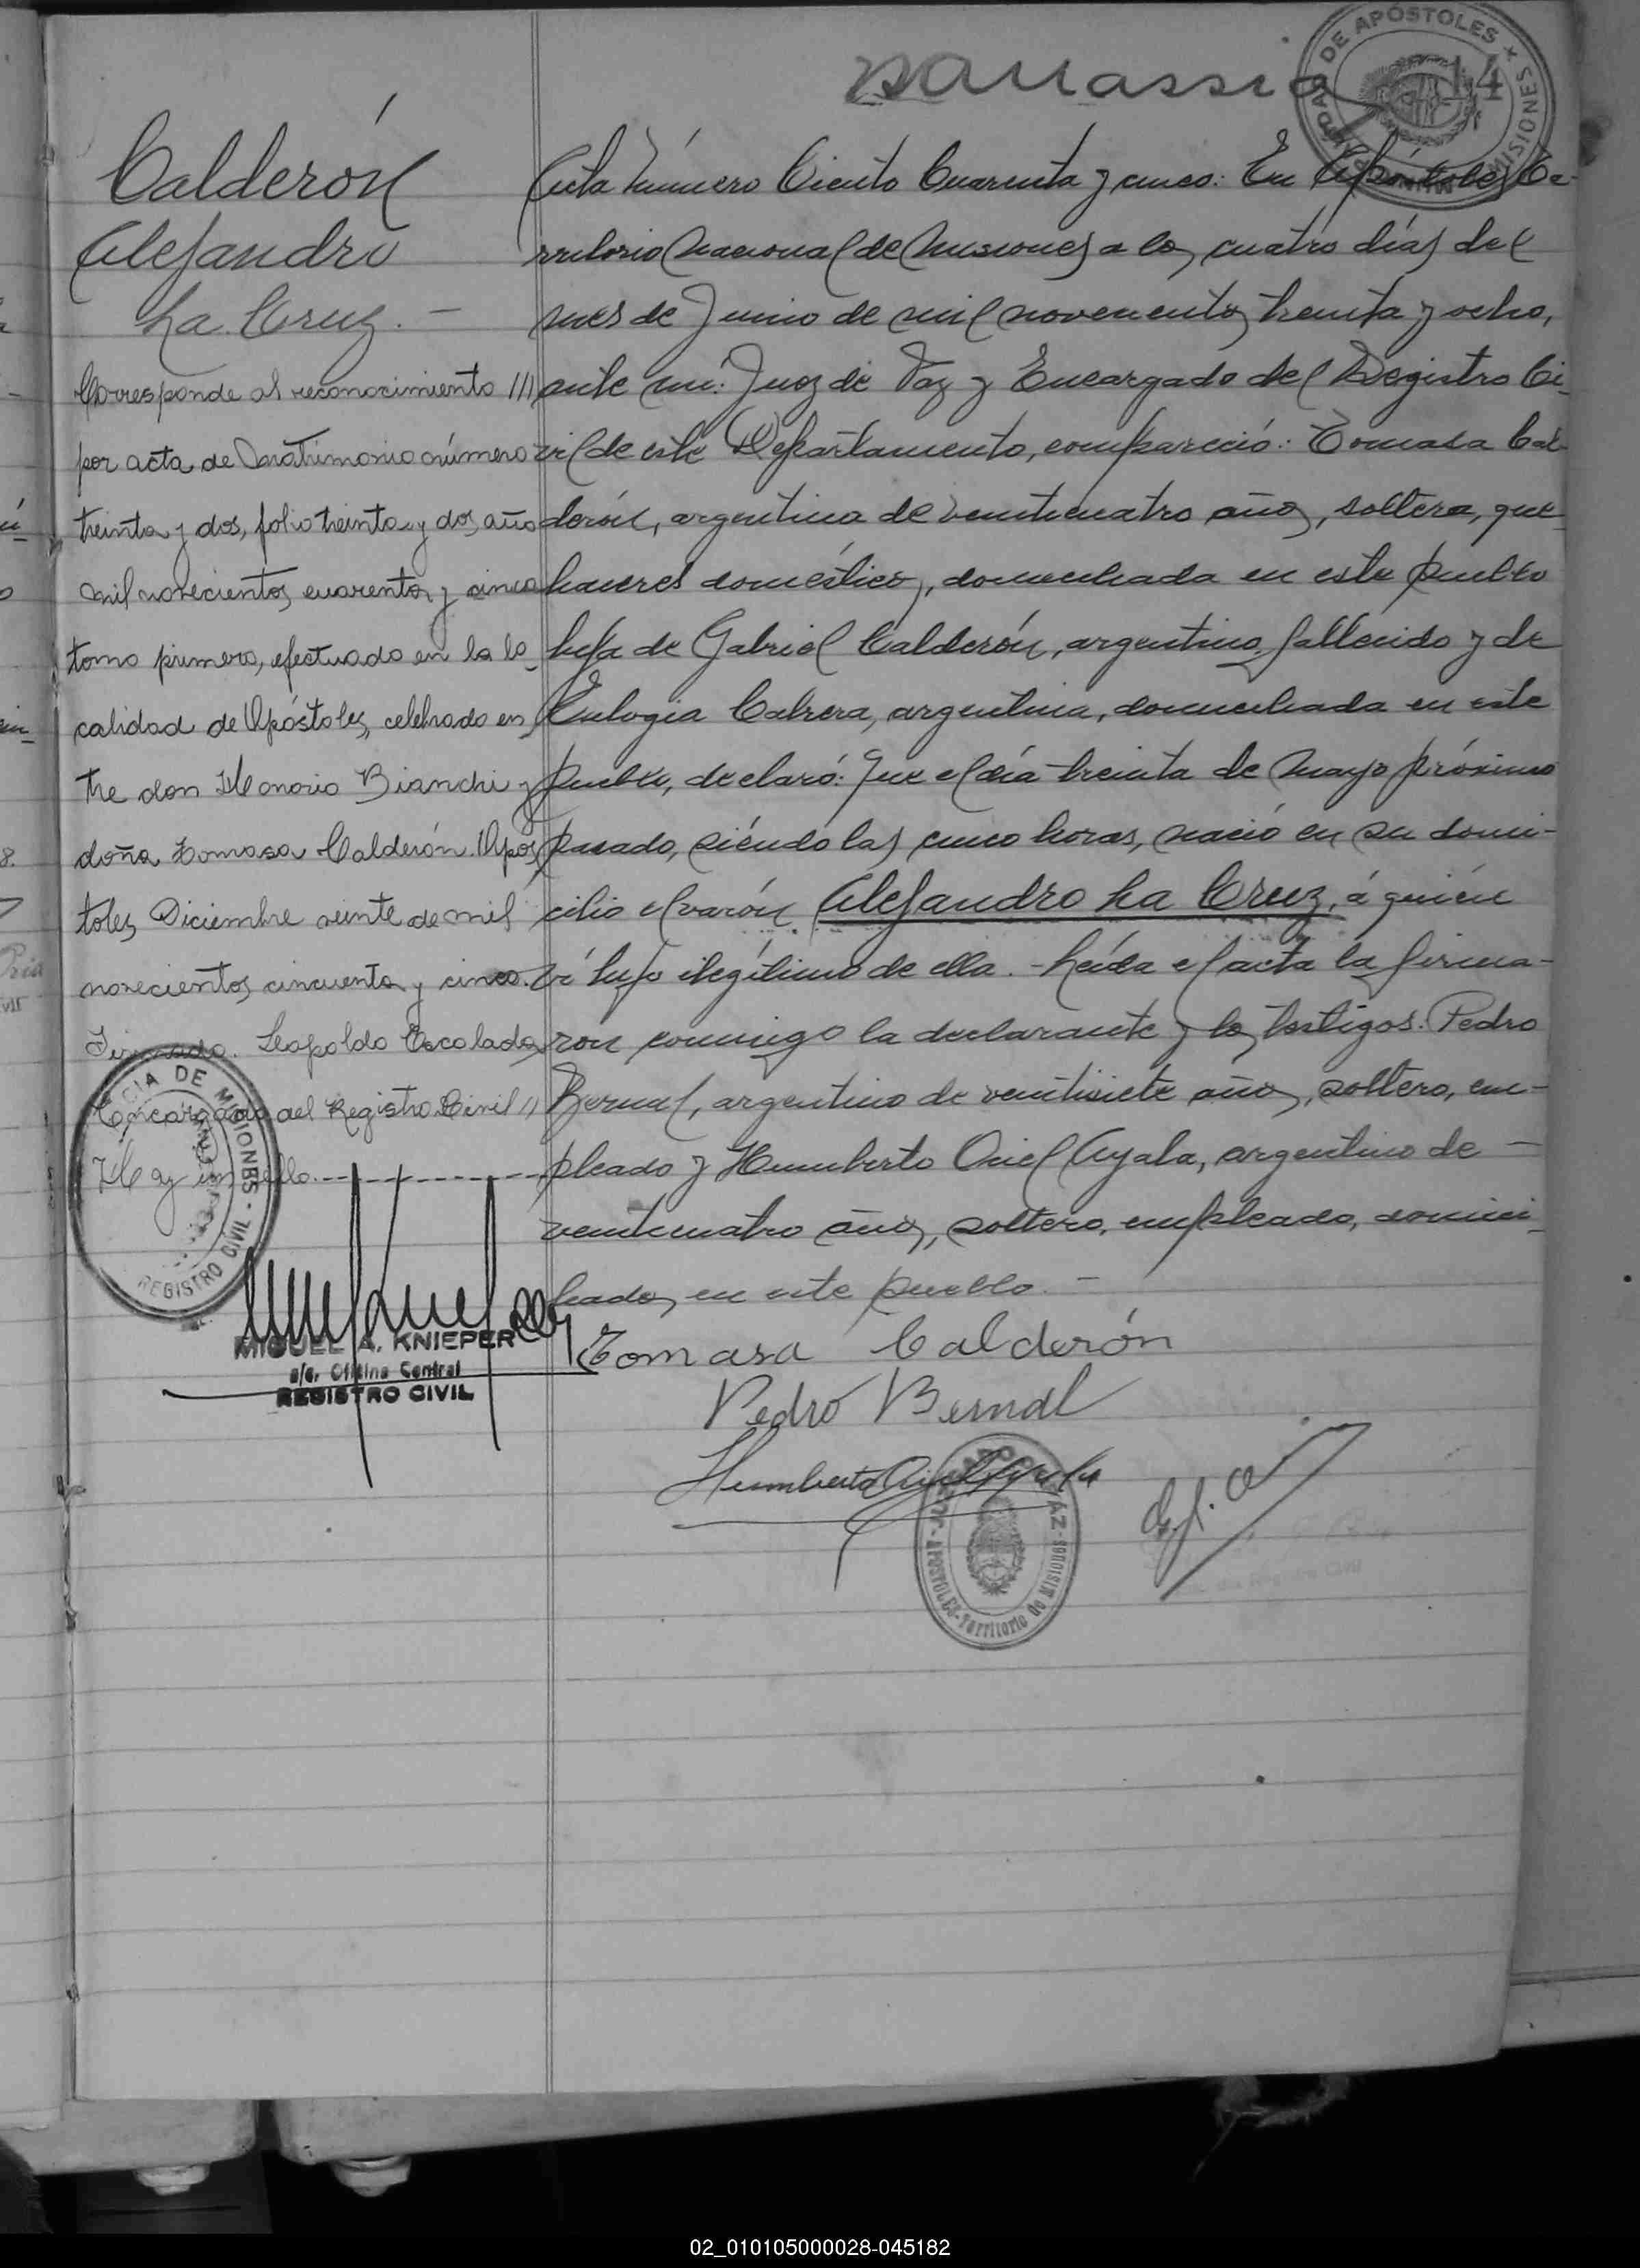 14
DE APÓSTOLES
MISIONES
Calderón
Alejandro
La Cruz. —
Corresponde al reconocimiento ///
por acta de Matrimonio número
treinta y dos, folio treinta y dos, año
mil novecientos cuarenta y cinco
tomo primero, efectuado en la lo-
calidad de Apóstoles, celebrado en
tre don Honorio Bianchi y
doña Tomasa Calderón. Após
toles, Diciembre veinte de mil
novecientos cincuenta y cinco.
Firmado. Leopoldo Escalada
Encargado del Registro Civil //
Hay un sello.
CIA DE MISIONES - REGISTRO CIVIL
MIGUEL A. KNIEPER
a/c. Oficina Central
REGISTRO CIVIL
Acta Número Ciento Cuarenta y cinco: En Apóstoles, Te-
rritorio Nacional de Misiones a los cuatro días del
mes de Junio de mil novecientos treinta y ocho,
ante mí: Juez de Paz y Encargado del Registro Ci-
vil de este Departamento, compareció: Tomasa Cal-
derón, argentina de veinticuatro años, soltera, que-
haceres domésticos, domiciliada en este pueblo
hija de Gabriel Calderón, argentino, fallecido y de
Eulogia Cabrera, argentina, domiciliada en este
pueblo, declaró: Que el día treinta de Mayo próximo
pasado, siéndo las cinco horas, nació en su domi-
cilio el varón Alejandro La Cruz, á quién
ví hijo ilegítimo de ella. - Leída el acta la firma-
ron conmigo la declarante y los testigos: Pedro
Bernal, argentino de veintisiete años, soltero, em-
pleado y Humberto Oriel Ayala, argentino de —
veinticuatro años, soltero, empleado, domici-
liados en este pueblo. —
Tomasa Calderón
Pedro Bernal
Humberto Oriel Ayala
APOSTOLES - Territorio de Misiones
02_010105000028-045182